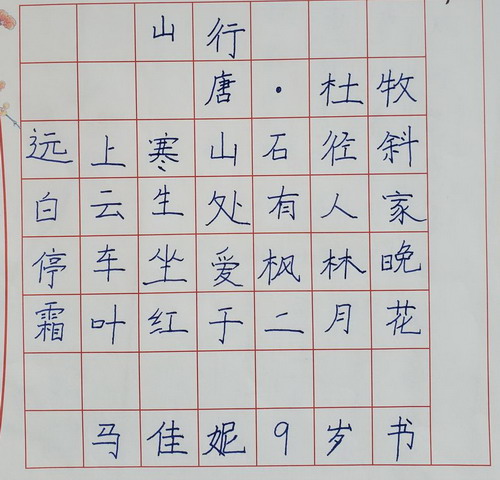 山行
唐·杜牧
远上寒山石径斜
白云生处有人家
停车坐爱枫林晚
霜叶红于二月花
马佳妮9岁书